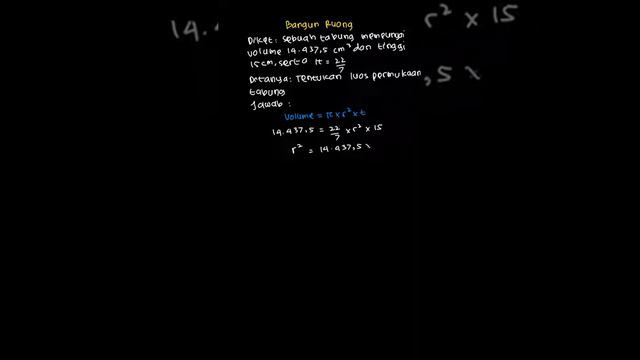 Bangun Ruang
Diket: sebuah tabung mempunyai
volume 14.437,5 cm³ dan tinggi
15 cm, serta π = 22/7
Ditanya: Tentukan luas permukaan
tabung
Jawab:
Volume = π x r² x t
14.437,5 = 22/7 x r² x 15
r² = 14.437,5 x
14.
r² x 15
,5 x